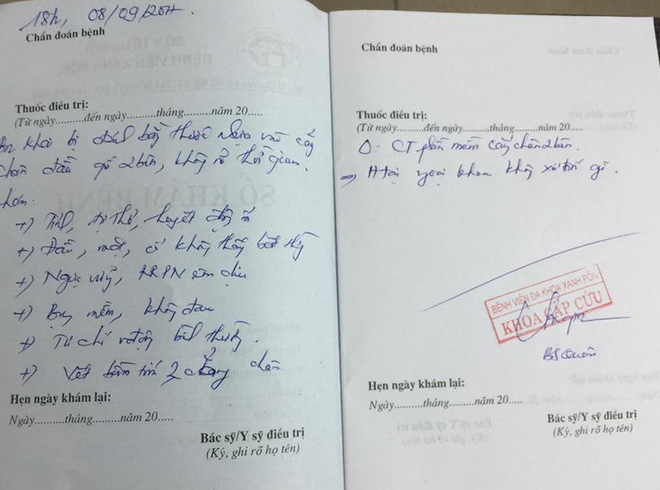 18h, 08/09/2017
Chẩn đoán bệnh
Thuốc điều trị:
(Từ ngày..........đến ngày..........tháng..........năm 20.....
khai bị đánh bằng thước nhựa vào cẳng
chân đầu gối 2 bên, không rõ thời gian.
+) Tỉnh, tự thở, huyết động ổn
+) Đầu, mặt, cổ không thấy bất thg
+) Ngực vững, RRPN êm dịu
+) Bụng mềm, không đau
+) Tứ chi vận động bình thường.
+) Vết bầm tím 2 cẳng chân
Hẹn ngày khám lại:
Ngày..........tháng..........năm 20.....
Bác sỹ/Y sỹ điều trị
(Ký, ghi rõ họ tên)
Chẩn đoán bệnh
Thuốc điều trị:
(Từ ngày..........đến ngày..........tháng..........năm 20.....
CT phần mềm cẳng chân 2 bên.
=> Htại ngoại khoa không xử trí gì.
BỆNH VIỆN ĐA KHOA XANH PÔN
KHOA CẤP CỨU
Hẹn ngày khám lại:
Ngày..........tháng..........năm 20.....
Bác sỹ/Y sỹ điều trị
(Ký, ghi rõ họ tên)